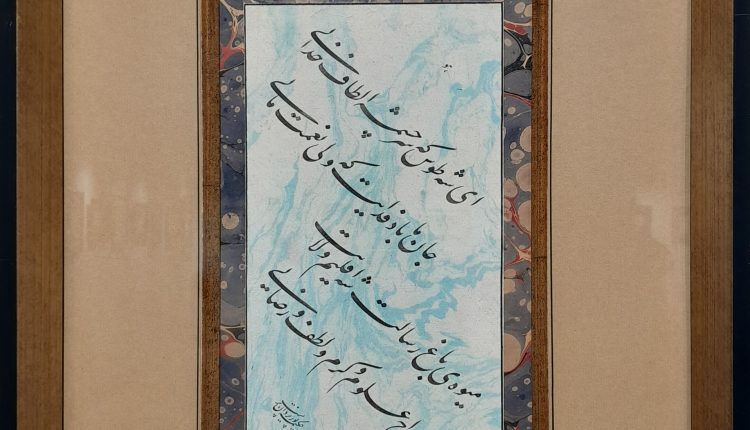 هو
ای شه طوس که سرچشمه الطاف خدایی
جان ما باد فدایت که ولی نعمت مایی
میوه‌ی باغ رسالت شه اقلیم ولایت
علوم و کرم و لطف و رضایی